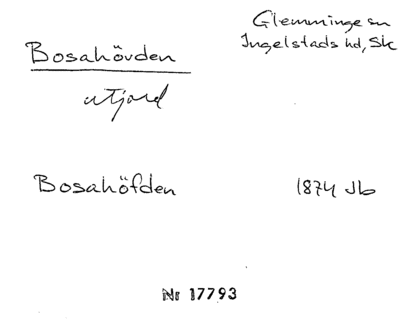 Glemminge sn
Bosahövden
Ingelstads hd, Sk
utjord
Bosahöfden
1874 Jb
Nr 17793